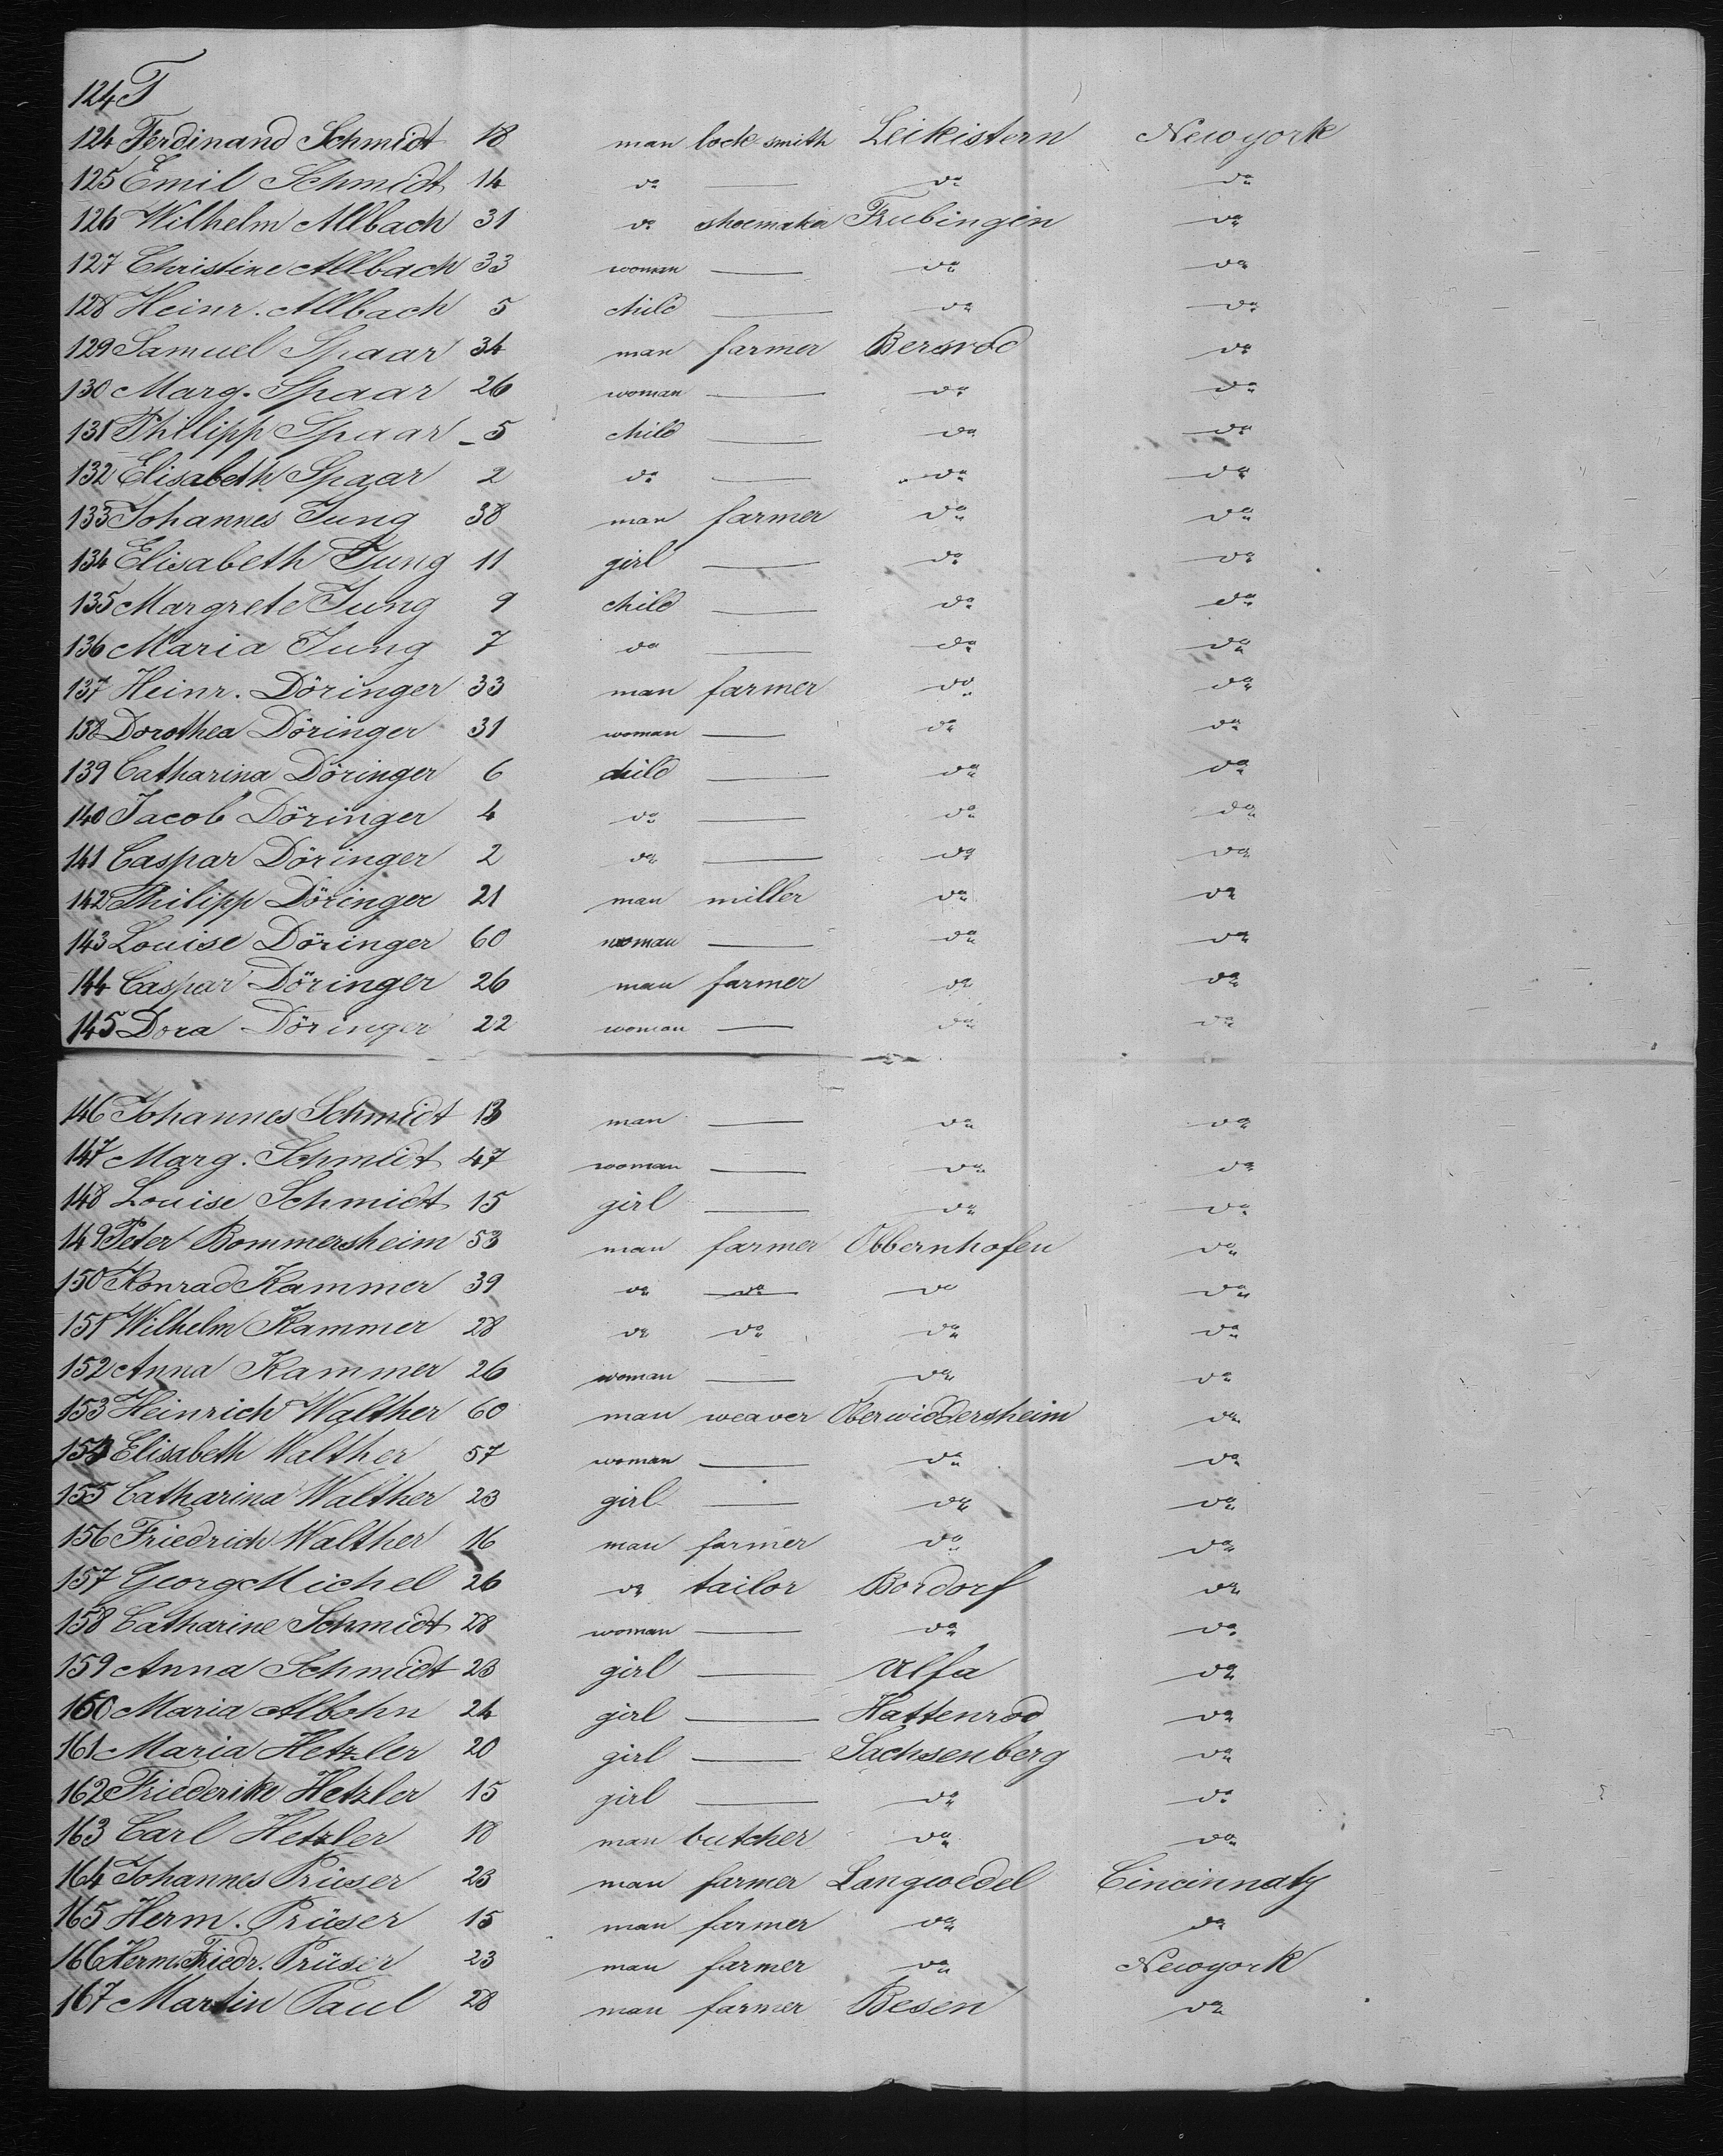 124 F
124 Ferdinand Schmidt 18 man lock smith Leikistern Newyork
125 Emil Schmidt 14 do — do do
126 Wilhelm Allbach 31 do shoemaker Trubingen do
127 Christine Allbach 33 woman — do do
128 Heinr. Allbach 5 child — do do
129 Samuel Spaar 34 man farmer Bersrod do
130 Marg. Spaar 26 woman — do do
131 Philipp Spaar 5 child — do do
132 Elisabeth Spaar 2 do — do do
133 Johannes Jung 38 man farmer do do
134 Elisabeth Jung 11 girl — do do
135 Margrete Jung 9 child — do do
136 Maria Jung 7 do — do do
137 Heinr. Döringer 33 man farmer do do
138 Dorothea Döringer 31 woman — do do
139 Catharina Döringer 6 child — do do
140 Jacob Döringer 4 do — do do
141 Caspar Döringer 2 do — do do
142 Philipp Döringer 21 man miller do do
143 Louise Döringer 60 woman — do do
144 Caspar Döringer 26 man farmer do do
145 Dora Döringer 22 woman — do do
146 Johannes Schmidt 13 man — do do
147 Marg. Schmidt 47 woman — do do
148 Louise Schmidt 15 girl — do do
149 Peter Bommersheim 53 man farmer Obbernhofen do
150 Konrad Kammer 39 do do do do
151 Wilhelm Kammer 28 do do do do
152 Anna Kammer 26 woman — do do
153 Heinrich Walther 60 man weaver Oberwiddersheim do
154 Elisabeth Walther 57 woman — do do
155 Catharina Walther 23 girl — do do
156 Friedrich Walther 16 man farmer do do
157 Georg Michel 26 do tailor Bordorf do
158 Catharine Schmidt 28 woman — do do
159 Anna Schmidt 23 girl — Ulfa do
160 Maria Albohn 24 girl — Hattenrod do
161 Maria Hetzler 20 girl — Sachsenberg do
162 Friederike Hetzler 15 girl — do do
163 Carl Hetzler 18 man butcher do do
164 Johannes Prüser 23 man farmer Langwedel Cincinnaty
165 Herm. Prüser 15 man farmer do do
166 Herm. Friedr. Prüser 23 man farmer do Newyork
167 Martin Paul 28 man farmer Besen do